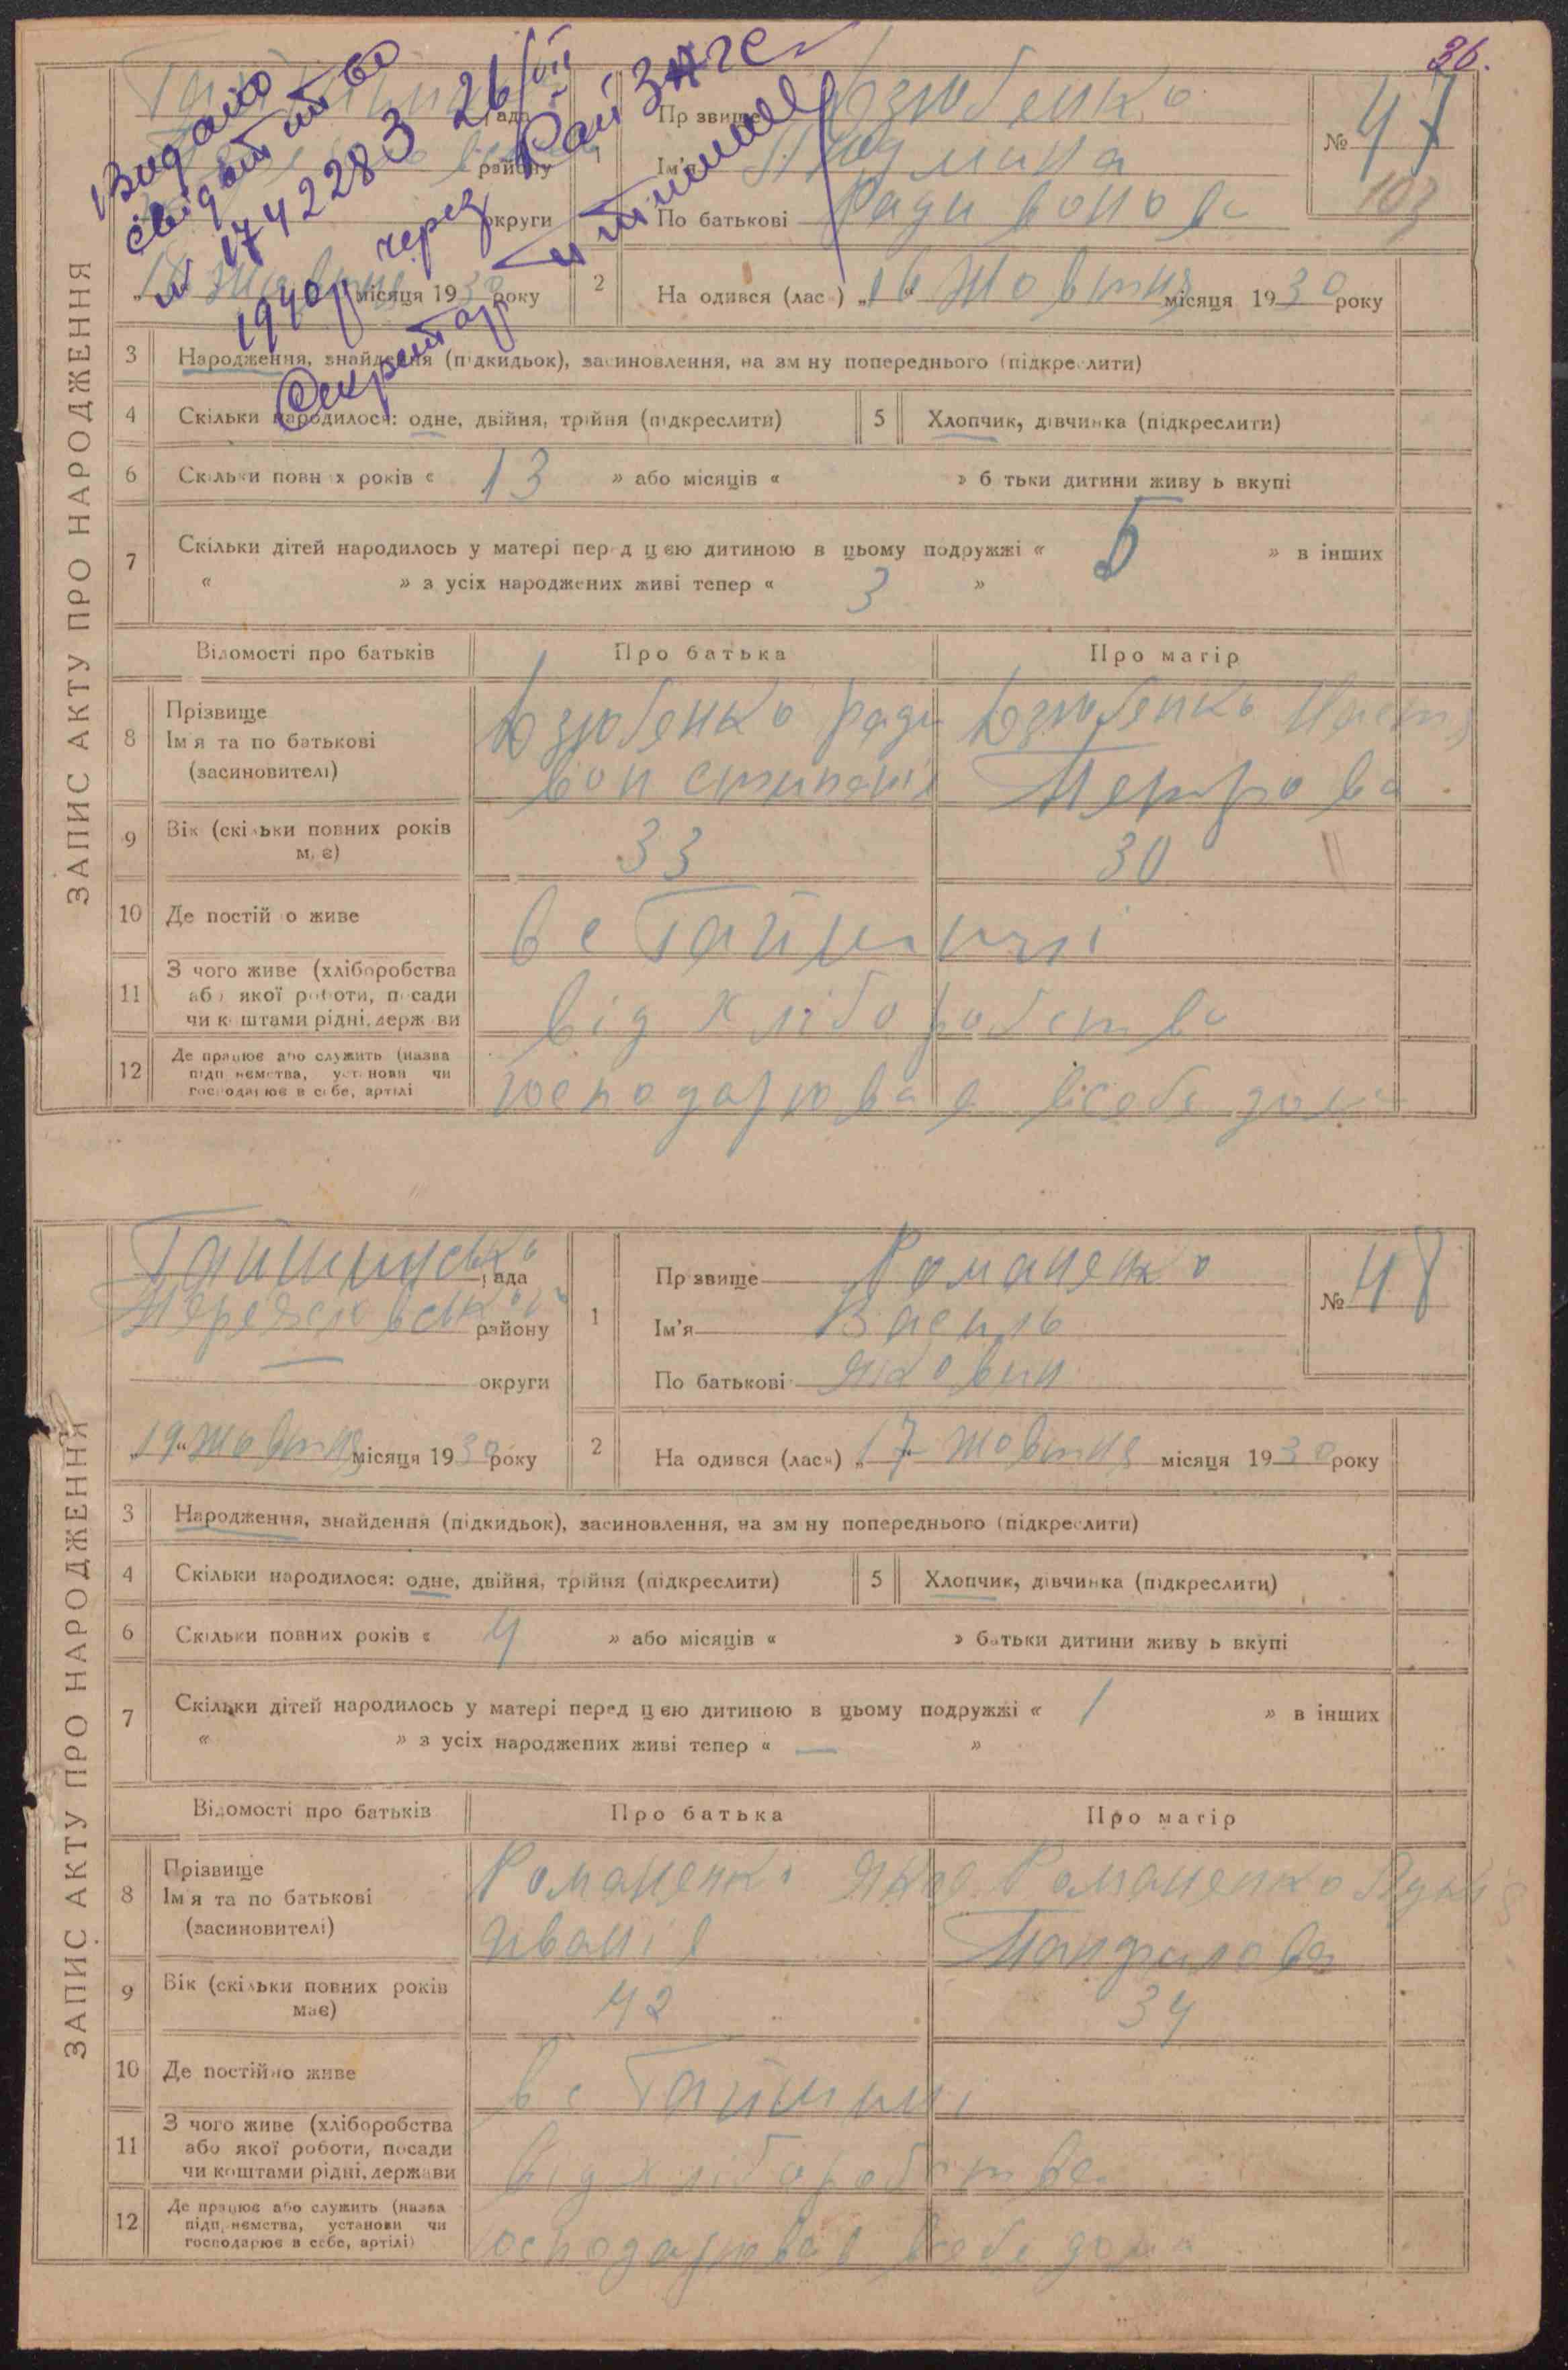 36.
Видано
свідоцтво
№ 1742283 26/VII
1940 р через Рай ЗАГС
Секретар
ЗАПИС АКТУ ПРО НАРОДЖЕННЯ
рада
району
округи
18 жовтня місяця 1930 року
1
Прізвище Дзюбенко
Ім'я Людмила
По батькові Радивонова
№ 47
103
2 Народився (лася) „16" жовтня місяця 1930 року
3 Народження, знайдення (підкидьок), засиновлення, на зміну попереднього (підкреслити)
4 Скільки народилося: одне, двійня, трійня (підкреслити) 5 Хлопчик, дівчинка (підкреслити)
6 Скільки повних років « 13 » або місяців « » батьки дитини живуть вкупі
7 Скільки дітей народилось у матері перед цією дитиною в цьому подружжі « 5 » в інших
« » з усіх народжених живі тепер « 3 »
Відомості про батьків Про батька Про матір
8 Прізвище
Ім'я та по батькові
(засиновителі)
Дзюбенко Ради
вон
Дзюбенко Настя
Петрова
9 Вік (скільки повних років має) 33 30
10 Де постійно живе в с Гайшині
11 З чого живе (хліборобства
або якої роботи, посади
чи коштами рідні, держави
від хліборобства
12 Де працює або служить (назва
підприємства, установи чи
господарює в себе, артілі
господарював в себе дома
ЗАПИС АКТУ ПРО НАРОДЖЕННЯ
Гайшинська рада
Переяславського району
— округи
„19" жовтня місяця 1930 року
1
Прізвище Романенко
Ім'я Василь
По батькові Якович
№ 48
2 Народився (лася) „17" жовтня місяця 1930 року
3 Народження, знайдення (підкидьок), засиновлення, на зміну попереднього (підкреслити)
4 Скільки народилося: одне, двійня, трійня (підкреслити) 5 Хлопчик, дівчинка (підкреслити)
6 Скільки повних років « 4 » або місяців « » батьки дитини живуть вкупі
7 Скільки дітей народилось у матері перед цією дитиною в цьому подружжі « 1 » в інших
« » з усіх народжених живі тепер « — »
Відомості про батьків Про батька Про матір
8 Прізвище
Ім'я та по батькові
(засиновителі)
Романенко Яків
Іванів
Романенко
Панфилова
9 Вік (скільки повних років має) 42 34
10 Де постійно живе в с Гайшині
11 З чого живе (хліборобства
або якої роботи, посади
чи коштами рідні, держави
від хліборобства
12 Де працює або служить (назва
підприємства, установи чи
господарює в себе, артілі)
господарював в себе дома